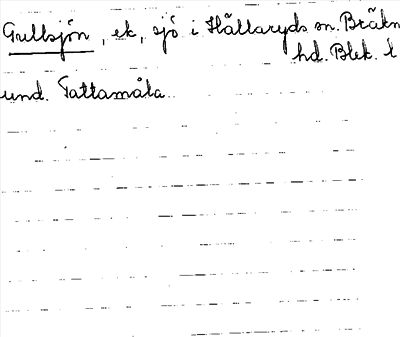 Gullsjön, ek, sjö i Hällaryds sn. Bräkn
hd. Blek. l
und. Tattamåla